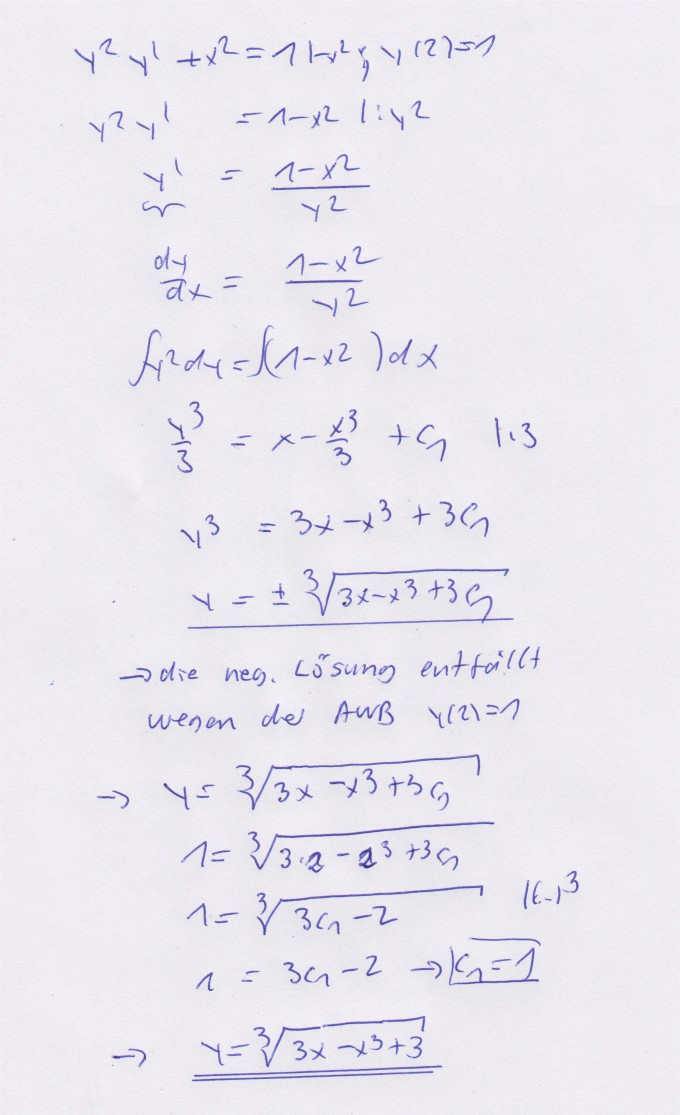 y² y' + x² = 1 |-x² ; y(2)=1
y² y' = 1-x² |:y²
y' = (1-x²)/y²
dy/dx = (1-x²)/y²
∫y² dy = ∫(1-x²)dx
y³/3 = x - x³/3 + C₁ |·3
y³ = 3x - x³ + 3C₁
y = ± ∛(3x-x³+3C₁)
→ die neg. Lösung entfällt
wegen der AWB y(2)=1
→ y = ∛(3x-x³+3C₁)
1 = ∛(3·2-2³+3C₁)
1 = ∛(3C₁-2) |(..)³
1 = 3C₁-2 → C₁=1
→ y = ∛(3x-x³+3)